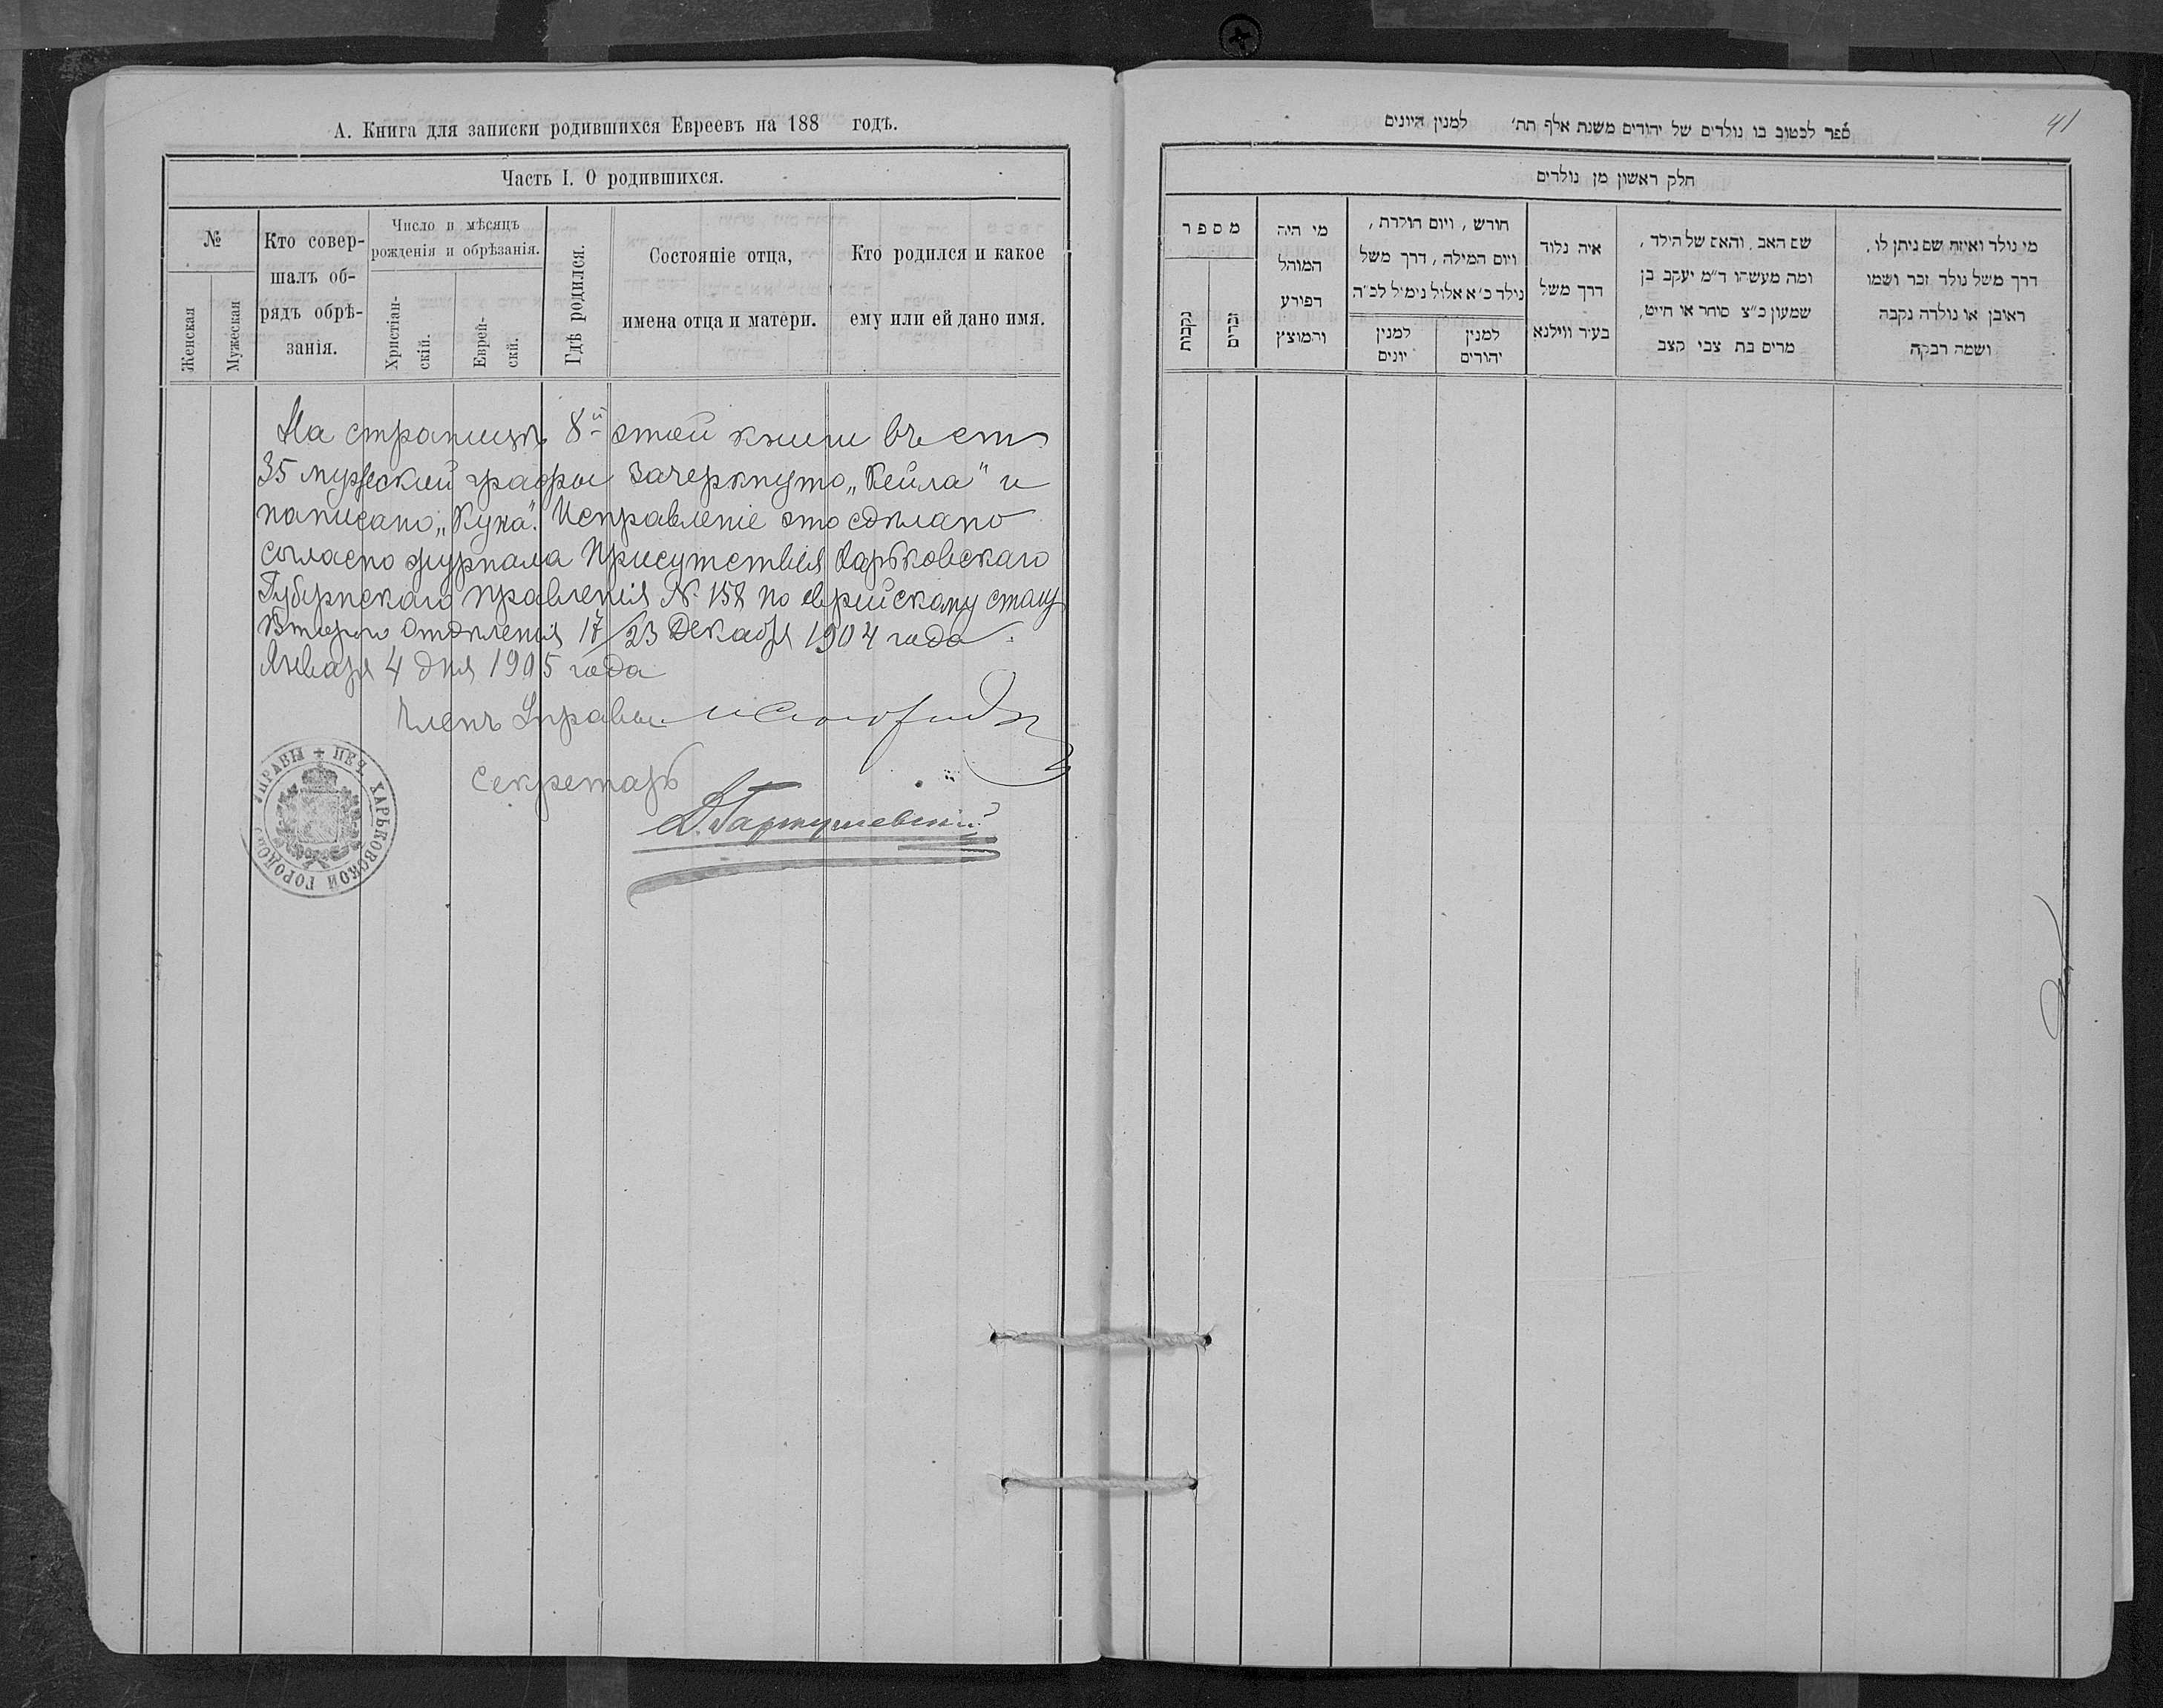 А. Книга для записки родившихся Евреевъ на 188 годъ.
Часть I. О родившихся.
№
Женская
Мужеская
Кто совер-
шалъ об-
рядъ обрѣ-
занія.
Число и мѣсяцъ
рожденія и обрѣзанія.
Христіан-
скій.
Еврей-
скй.
Гдѣ родился.
Состояніе отца,
имена отца и матери.
Кто родился и какое
ему или ей дано имя.
На страницѣ 8й этой книги въ ст
35 мужеской графы зачеркнуто „Кейла" и
написано „Куна". Исправленіе это сдѣлано
согласно журнала Присутствія Харьковскаго
Губернскаго правленія № 158 по еврейскому столу
Второго Отдѣленія 17/23 Декабря 1904 года.
Января 4 дня 1905 года
Членъ Управы
Секретарь
ПЕЧ. ХАРЬКОВСКОЙ ГОРОДСКОЙ УПРАВЫ
41
ספר לכטוב בו נולדים של יהודים משנת אלף תת׳ למנין היונים
חלק ראשון מן נולדים
מספר
נקבות
זכרים
מי היה
המוהל
הפורע
והמוצץ
חודש, ויום הולדת,
ויום המילה, דרך משל
נולד כ״א אלול נימול לכ״ה
למנין
יונים
למנין
יהודים
איה נלוד
דרך משל
בעיר ווילנא
שם האב, והאם של הילד,
ומה מעשהו ד״מ יעקב בן
שמעון כ״צ סוחר או חייט,
מרים בת צבי קצב
מי נולד ואיזה שם ניתן לו,
דרך משל נולד זכר ושמו
ראובן או נולדה נקבה
ושמה רבקה